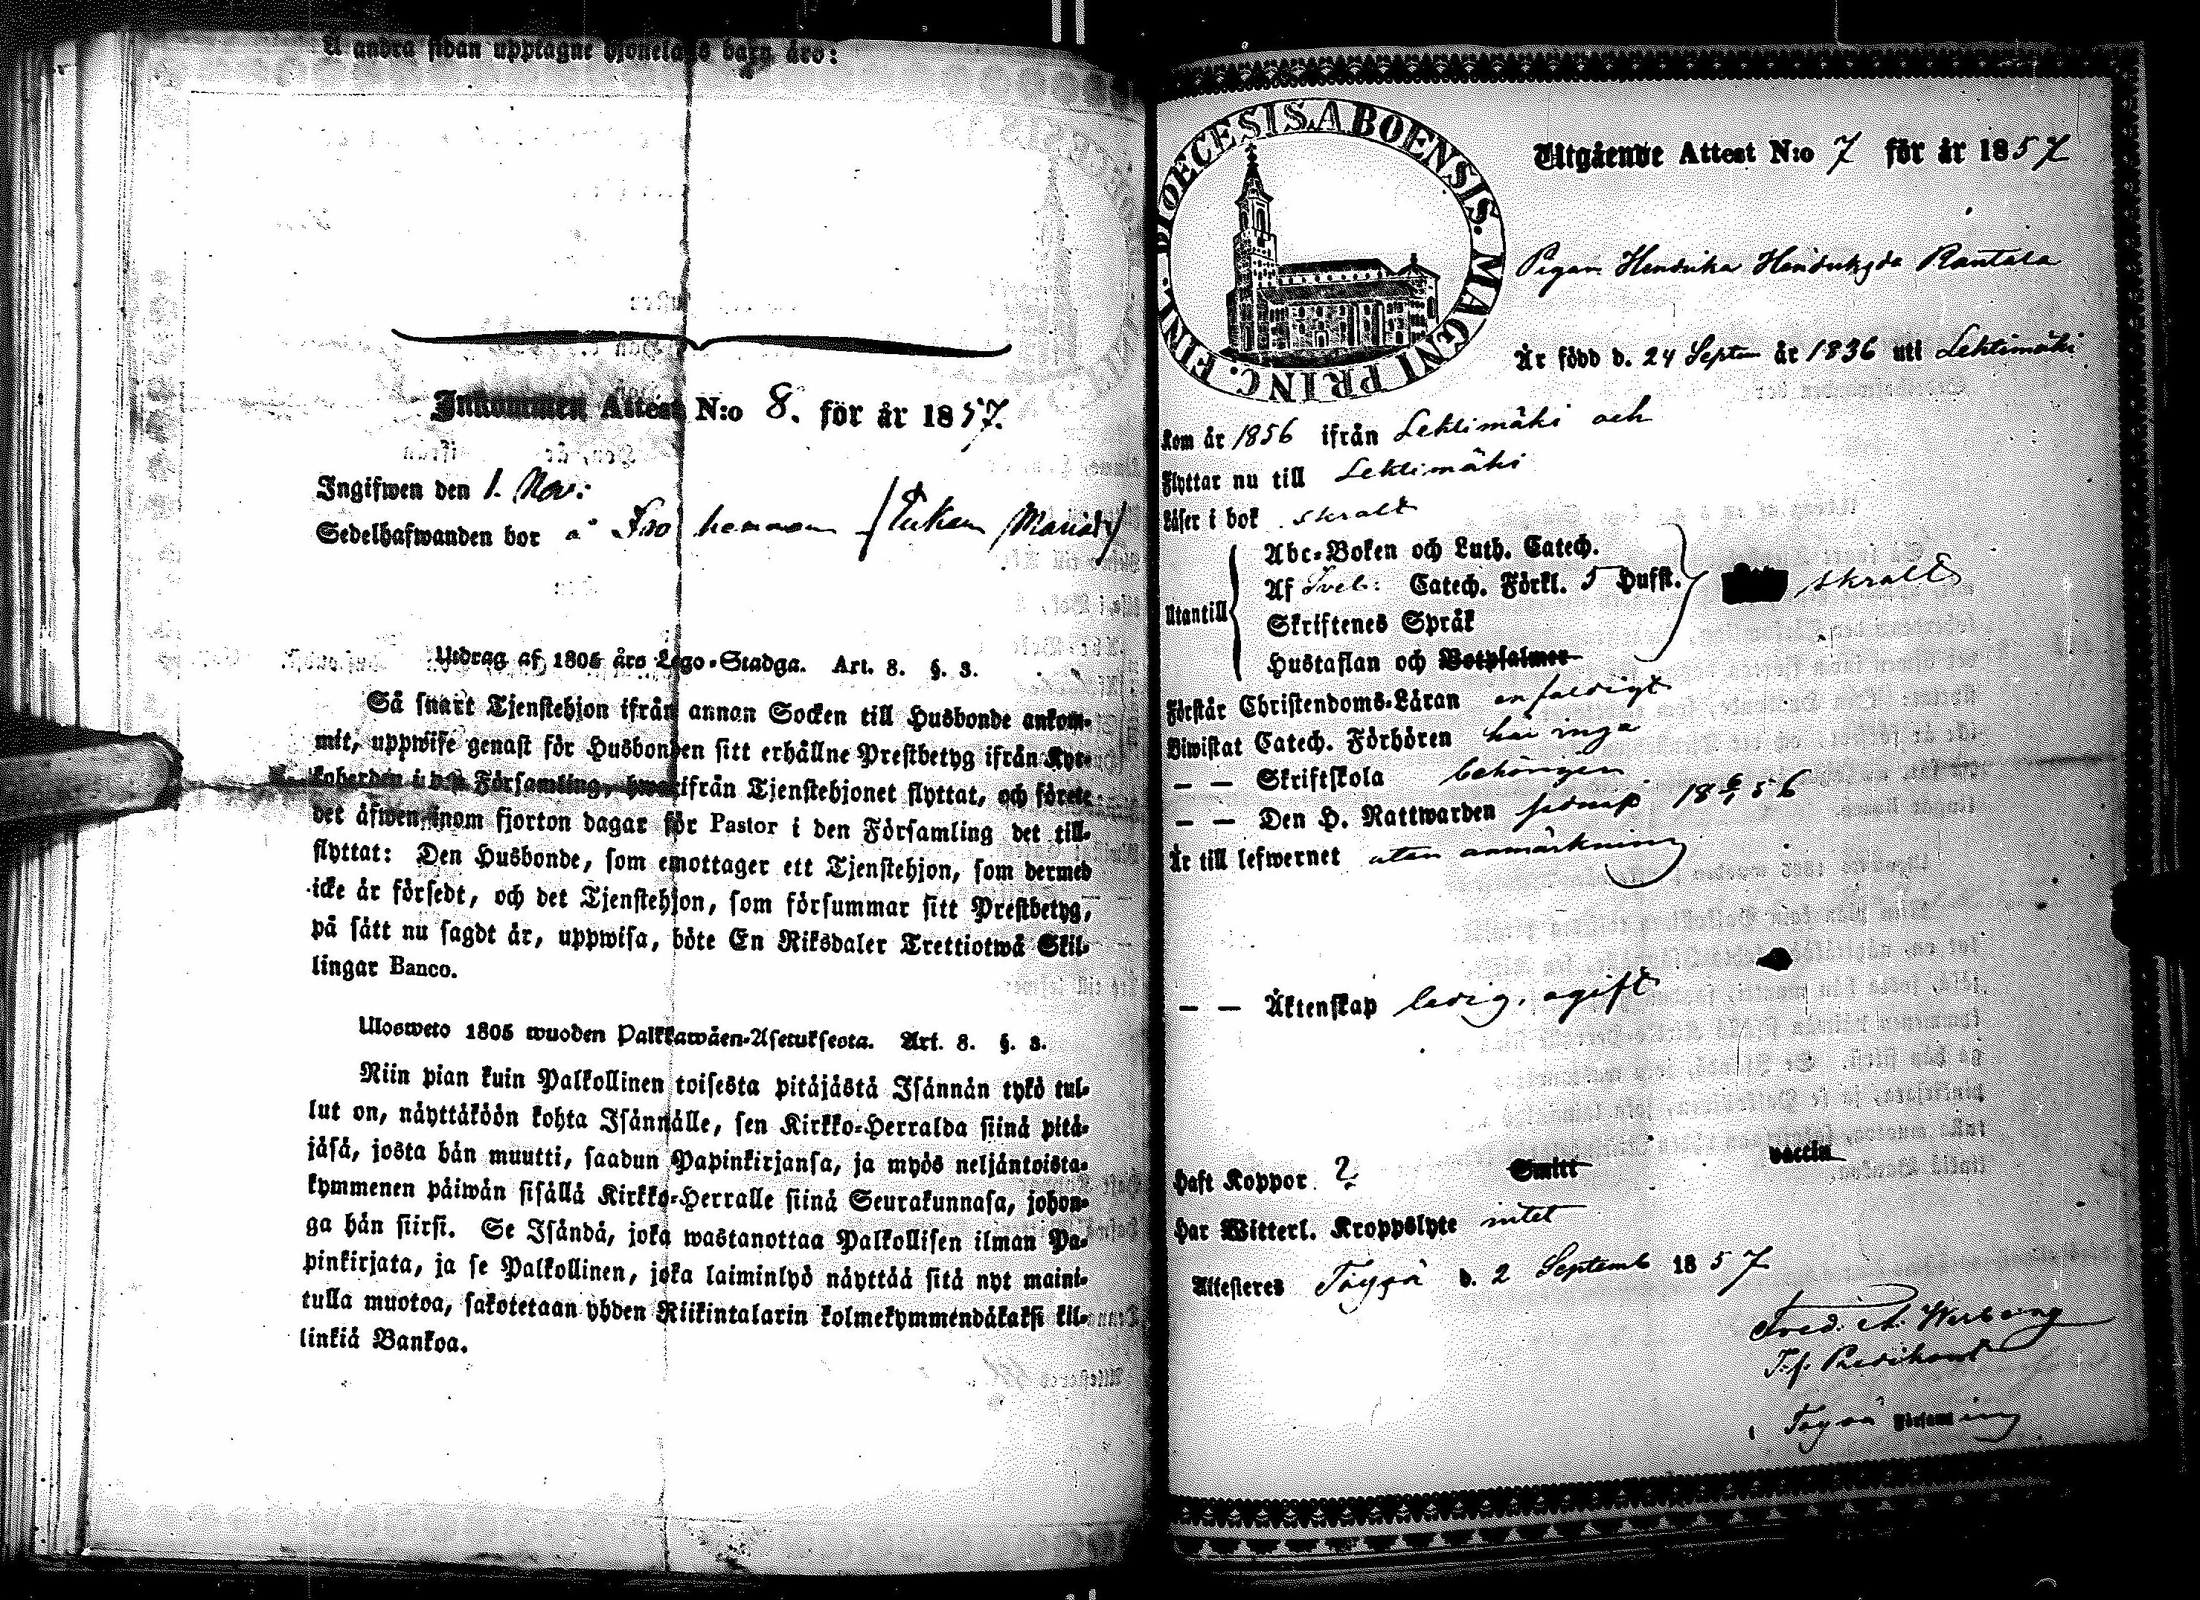 å andra sidan upptagne Hjonelags barn äro:
Inkommen Attest N:o 8. för år 1857.
Ingifwen den 1. Nov:
Sedelhafwanden bor å Iso hemman
Utdrag af 1805 års Lego-Stadga. Art. 8. §. 3.
Så snart Tjenstehjon ifrån annan Socken till Husbonde ankom-
mit, uppwise genast för Husbonden sitt erhållne Prestbetyg ifrån Kyr-
koherden i den Församling, hwarifrån Tjenstehjonet flyttat, och förete
det äfwen inom fjorton dagar för Pastor i den Församling det till-
flyttat: Den Husbonde, som emottager ett Tjenstehjon, som dermed
icke är försedt, och det Tjenstehjon, som försummar sitt Prestbetyg,
på sätt nu sagdt är, uppwisa, böte En Riksdaler Trettiotwå Skil-
lingar Banco.
Ulosweto 1805 wuoden Palkkawäen-Asetuksesta. Art. 8. §. 3.
Niin pian kuin Palkollinen toisesta pitäjästä Isännän tykö tul-
lut on, näyttäköön kohta Isännälle, sen Kirkko-Herralda siinä pitä-
jäsä, josta hän muutti, saadun Papinkirjansa, ja myös neljäntoista-
kymmenen päiwän sisällä Kirkko-Herralle siinä Seurakunnasa, johon-
ga hän siirsi. Se Isändä, joka wastanottaa Palkollisen ilman Pa-
pinkirjata, ja se Palkollinen, joka laiminlyö näyttää sitä nyt maini-
tulla muotoa, sakotetaan yhden Riikintalarin kolmekymmendäkaksi kil-
linkiä Bankoa.
DIOECESIS ABOENSIS. MAGNI PRINC. FINL.
Utgående Attest N:o 7 för år 1857
Pigan Hendrika Hendriksdr Rantala
Är född d. 24 Septem år 1836 uti Lehtimäki
Kom år 1856 ifrån Lehtimäki och
Flyttar nu till Lehtimäki
Läser i bok skralt
Utantill
Abc-Boken och Luth. Catech.
Af Sveb: Catech. Förkl. 5 Hufst. skralt
Skriftenes Språk
Hustaflan och Botpsalmer
Förstår Christendoms-Läran enfaldigt
Biwistat Catech. Förhören här inga
— — Skriftskola behörigen
— — Den H. Nattwarden 18 56
Är till lefwernet utan anmärkning
— — Äktenskap ledig, ogift
Haft Koppor ? Smitt vaccin
Har Witterl. Kroppslyte intet
Attesteres Töysä d. 2 Septemb 1857
Fred. A. Warberg
T.f. Predikant
Töysä Församling